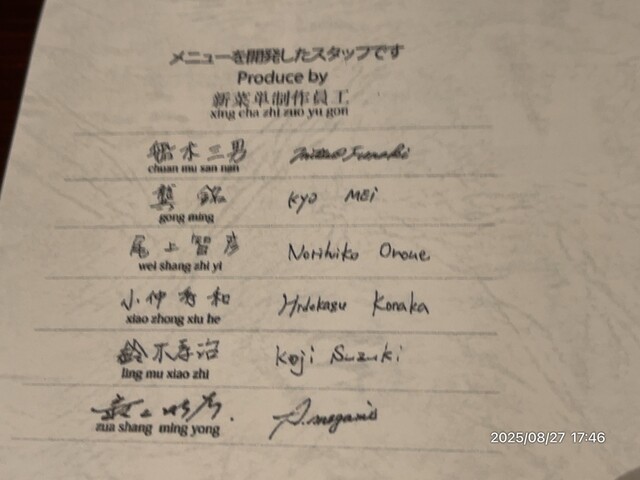 メニューを開発したスタッフです
Produce by
新菜单制作員工
xing cha zhi zuo yu gon
船木三男 Mitsuo Funaki
chuan mu san nan
龔 銘 Kyo MEi
gong ming
尾上智彦 Norihiko Onoue
wei shang zhi yi
小仲秀和 Hidekasu Konaka
xiao zhong xiu he
鈴木孝治 Koji Suzuki
ling mu xiao zhi
zua shang ming yong
2025/08/27 17:46